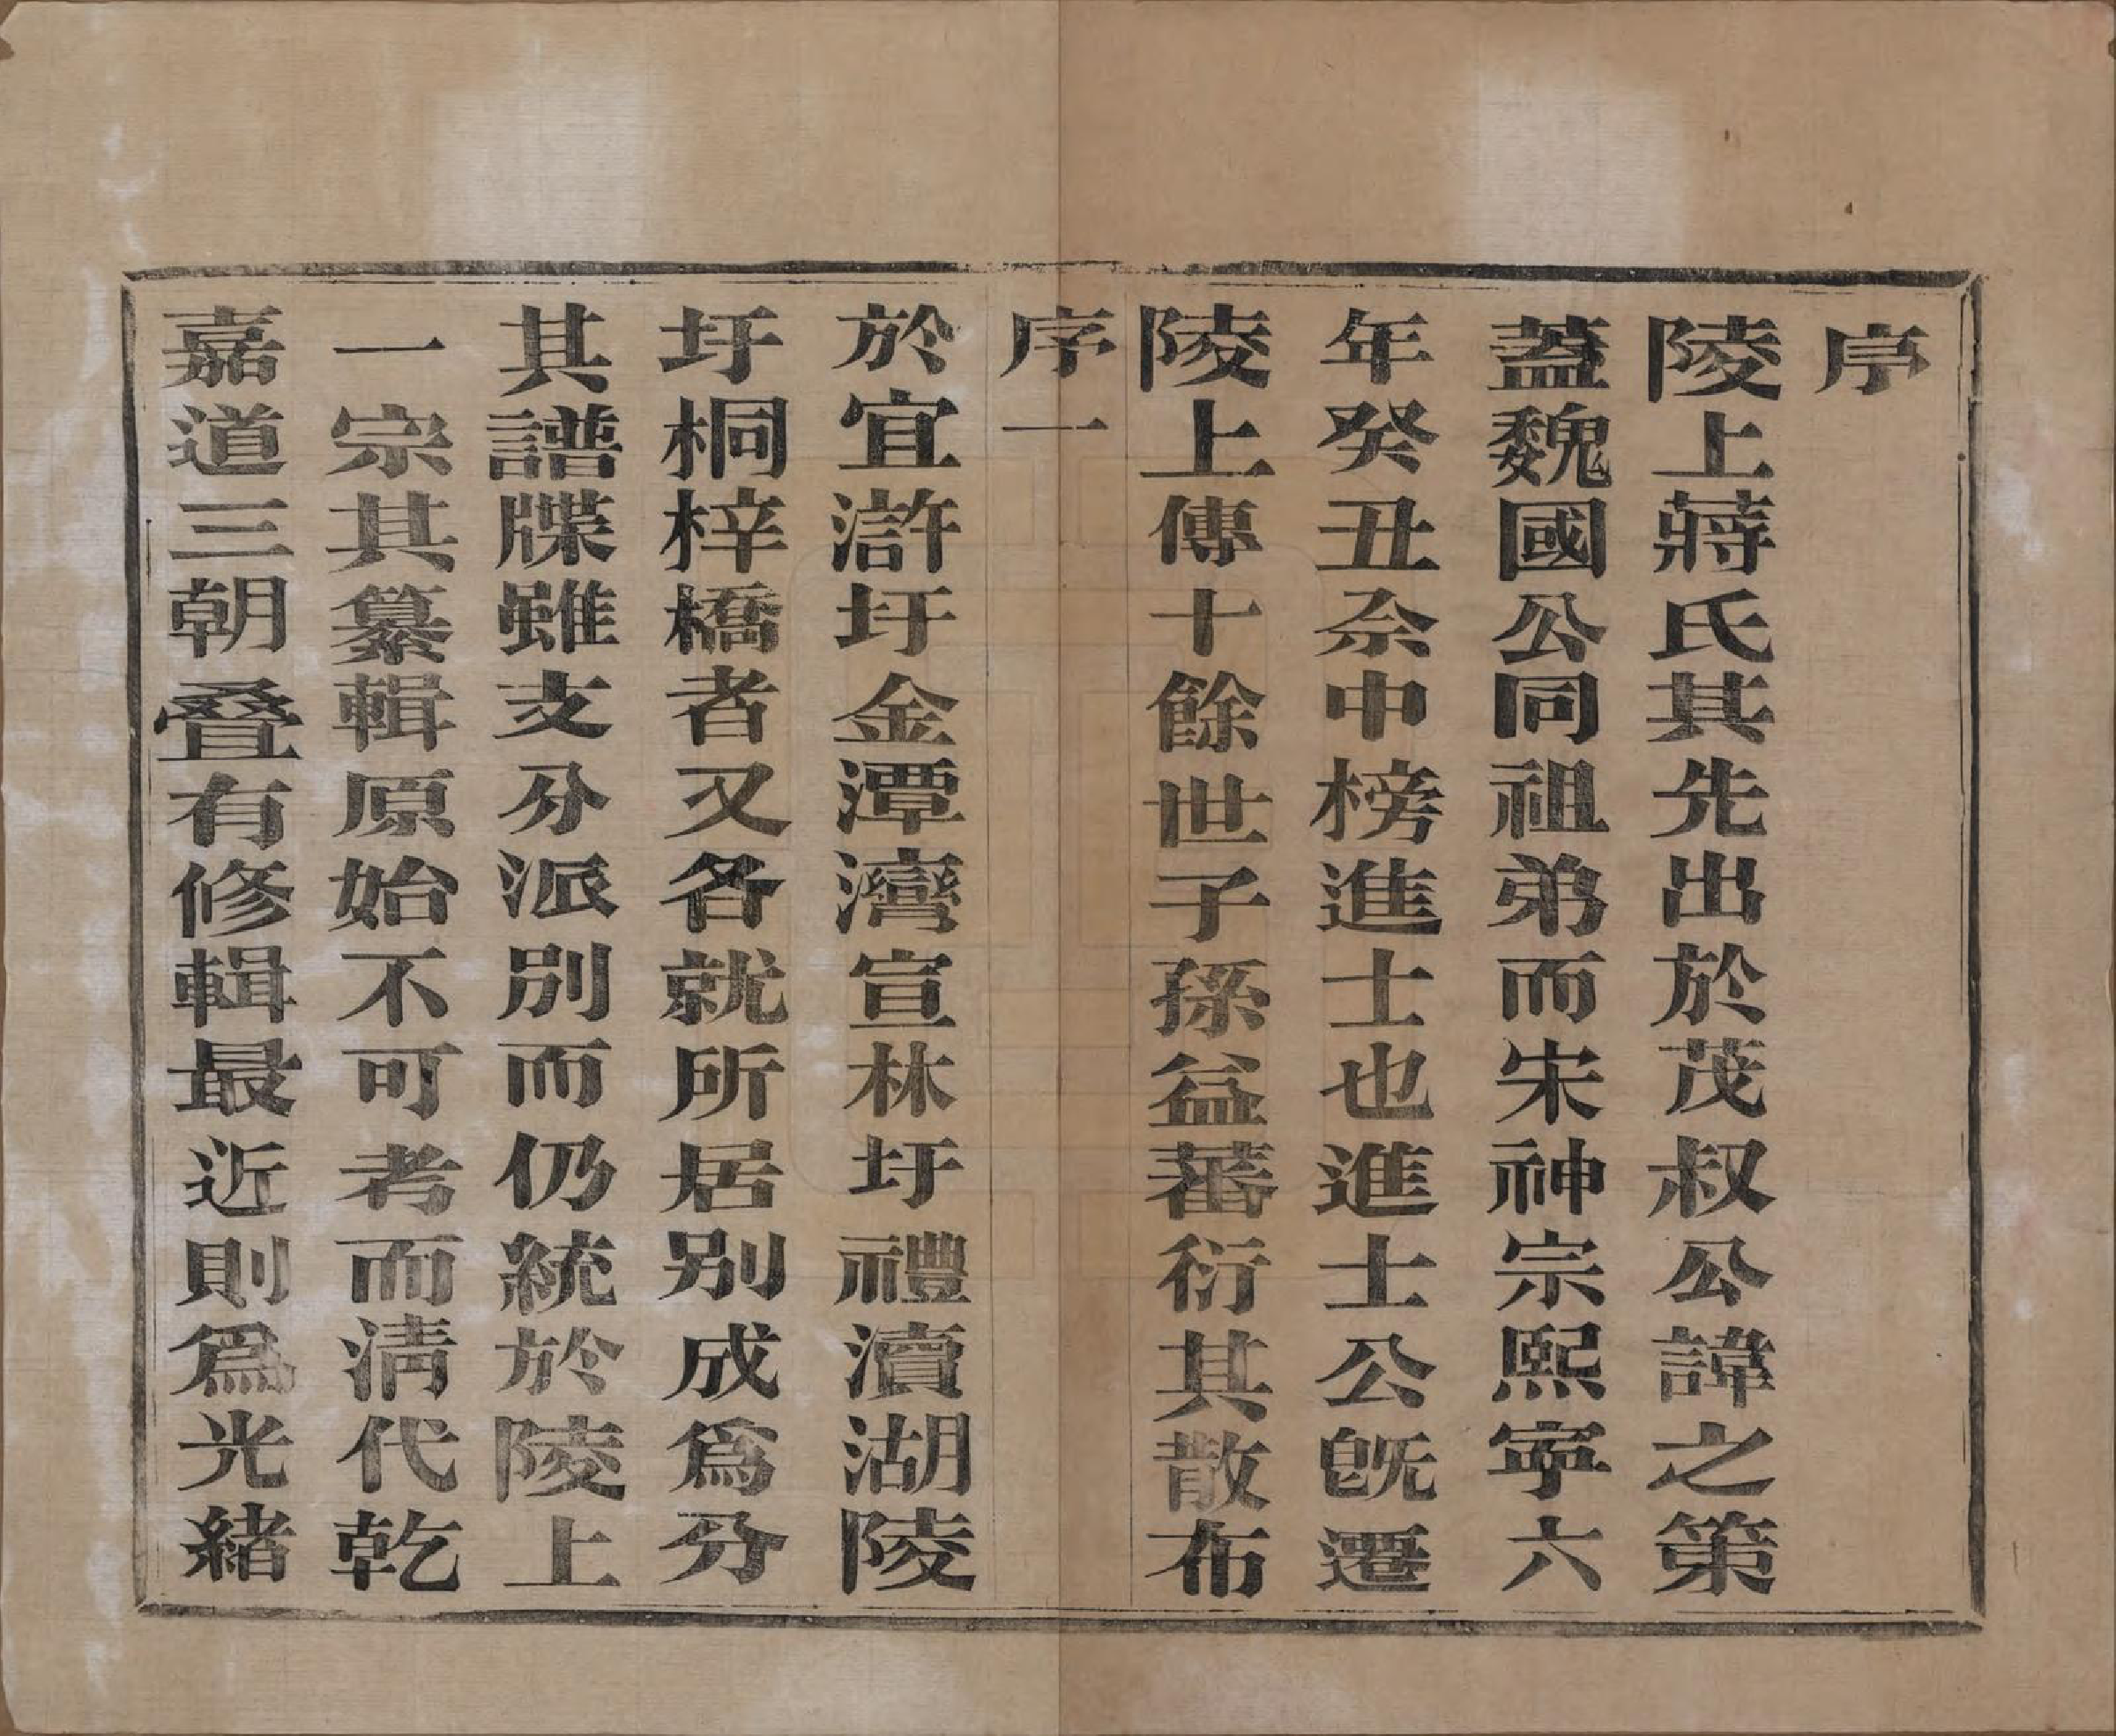 序
陵上蔣氏其先出於茂叔公諱之第
蓋魏國公同祖弟而宋神宗熙寧六
年癸丑佘中榜進士也進士公旣遷
陵上傳十餘世子孫益蕃衍其散布
序一
於宜滸圩金潭灣宣林圩禮瀆湖陵
圩桐梓橋者又各就所居別成爲分
其譜牒雖支分派別而仍統於陵上
一宗其纂輯原始不可考而清代乾
嘉道三朝叠有修輯最近則爲光緒